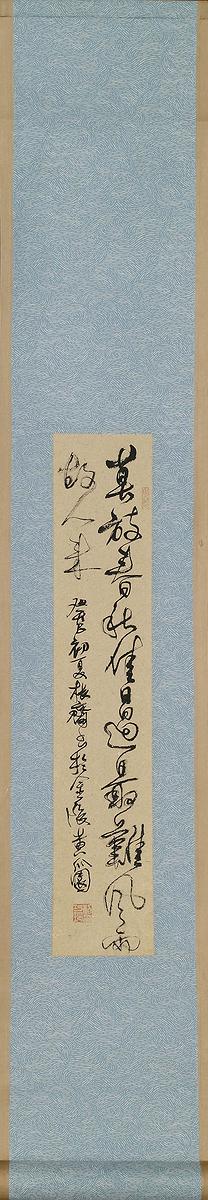 莫放春秋佳日過最難風雨
故人來
癸丑初夏根齋書於金陵黄瓜園